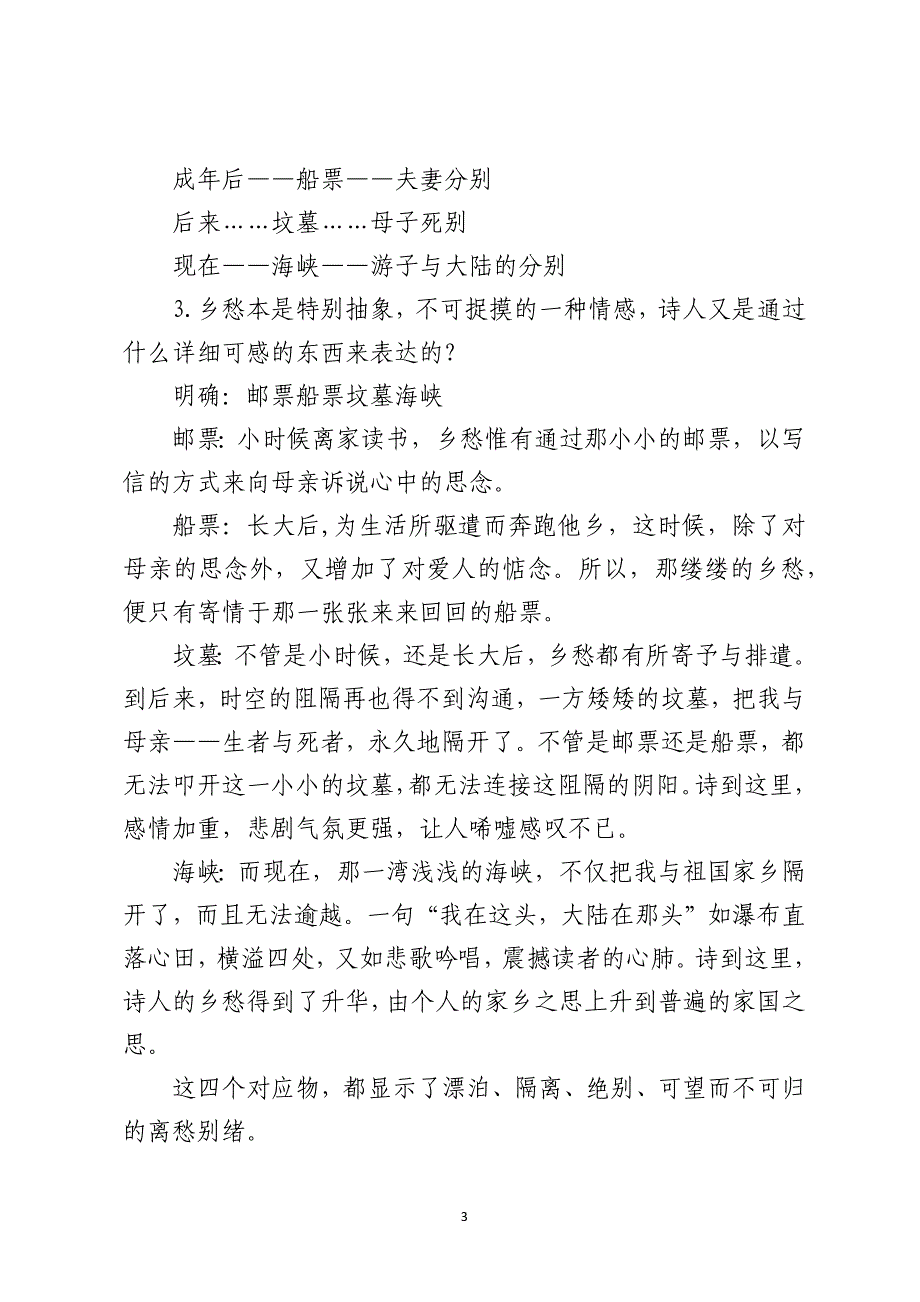 成年后——船票——夫妻分别
后来……坟墓……母子死别
现在——海峡——游子与大陆的分别
3.乡愁本是特别抽象，不可捉摸的一种情感，诗人又是通过
什么详细可感的东西来表达的？
明确：邮票船票坟墓海峡
邮票：小时候离家读书，乡愁惟有通过那小小的邮票，以写
信的方式来向母亲诉说心中的思念。
船票：长大后,为生活所驱遣而奔跑他乡，这时候，除了对
母亲的思念外，又增加了对爱人的惦念。所以，那缕缕的乡愁，
便只有寄情于那一张张来来回回的船票。
坟墓：不管是小时候，还是长大后，乡愁都有所寄予与排遣。
到后来，时空的阻隔再也得不到沟通，一方矮矮的坟墓，把我与
母亲——生者与死者，永久地隔开了。不管是邮票还是船票，都
无法叩开这一小小的坟墓，都无法连接这阻隔的阴阳。诗到这里，
感情加重，悲剧气氛更强，让人唏嘘感叹不已。
海峡：而现在，那一湾浅浅的海峡，不仅把我与祖国家乡隔
开了，而且无法逾越。一句“我在这头，大陆在那头”如瀑布直
落心田，横溢四处，又如悲歌吟唱，震撼读者的心肺。诗到这里，
诗人的乡愁得到了升华，由个人的家乡之思上升到普遍的家国之
思。
这四个对应物，都显示了漂泊、隔离、绝别、可望而不可归
的离愁别绪。
3